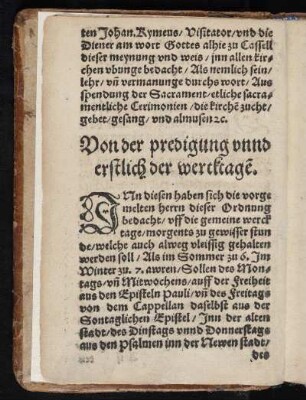 ten Johan. Kymeus, Visitator, vnd die
Diener am wort Gottes alhie zu Cassell
dieser meynung vnd weis, jnn allen kir-
chen vbunge bedacht, Als nemlich sein
lehr, vñ vermanunge durchs wort, Aus
spendung der Sacrament, etliche sacra-
mentliche Cerimonien, die kirchẽ zucht,
gebet, gesang, vnd almusen ꝛc.
Von der predigung vnnd
erstlich der wercktagẽ.
INn diesen haben sich die vorge
melten herrn dieser Ordnung
bedacht, vff die gemeine werck
tage, morgents zu gewisser stun
de, welche auch alweg vleissig gehalten
werden soll, Als im Sommer zu 6. Im
Winter zu. 7. awren, Sollen des Mon-
tags, vñ Mitwochens, auff der Freiheit
aus den Episteln Pauli, vñ des Freitags
von dem Cappellan daselbst aus der
Sontaglichen Epistel, Jnn der alten
stadt, des Dinstags vnnd Donnerstags
aus den Psalmen inn der Newen stadt,
des